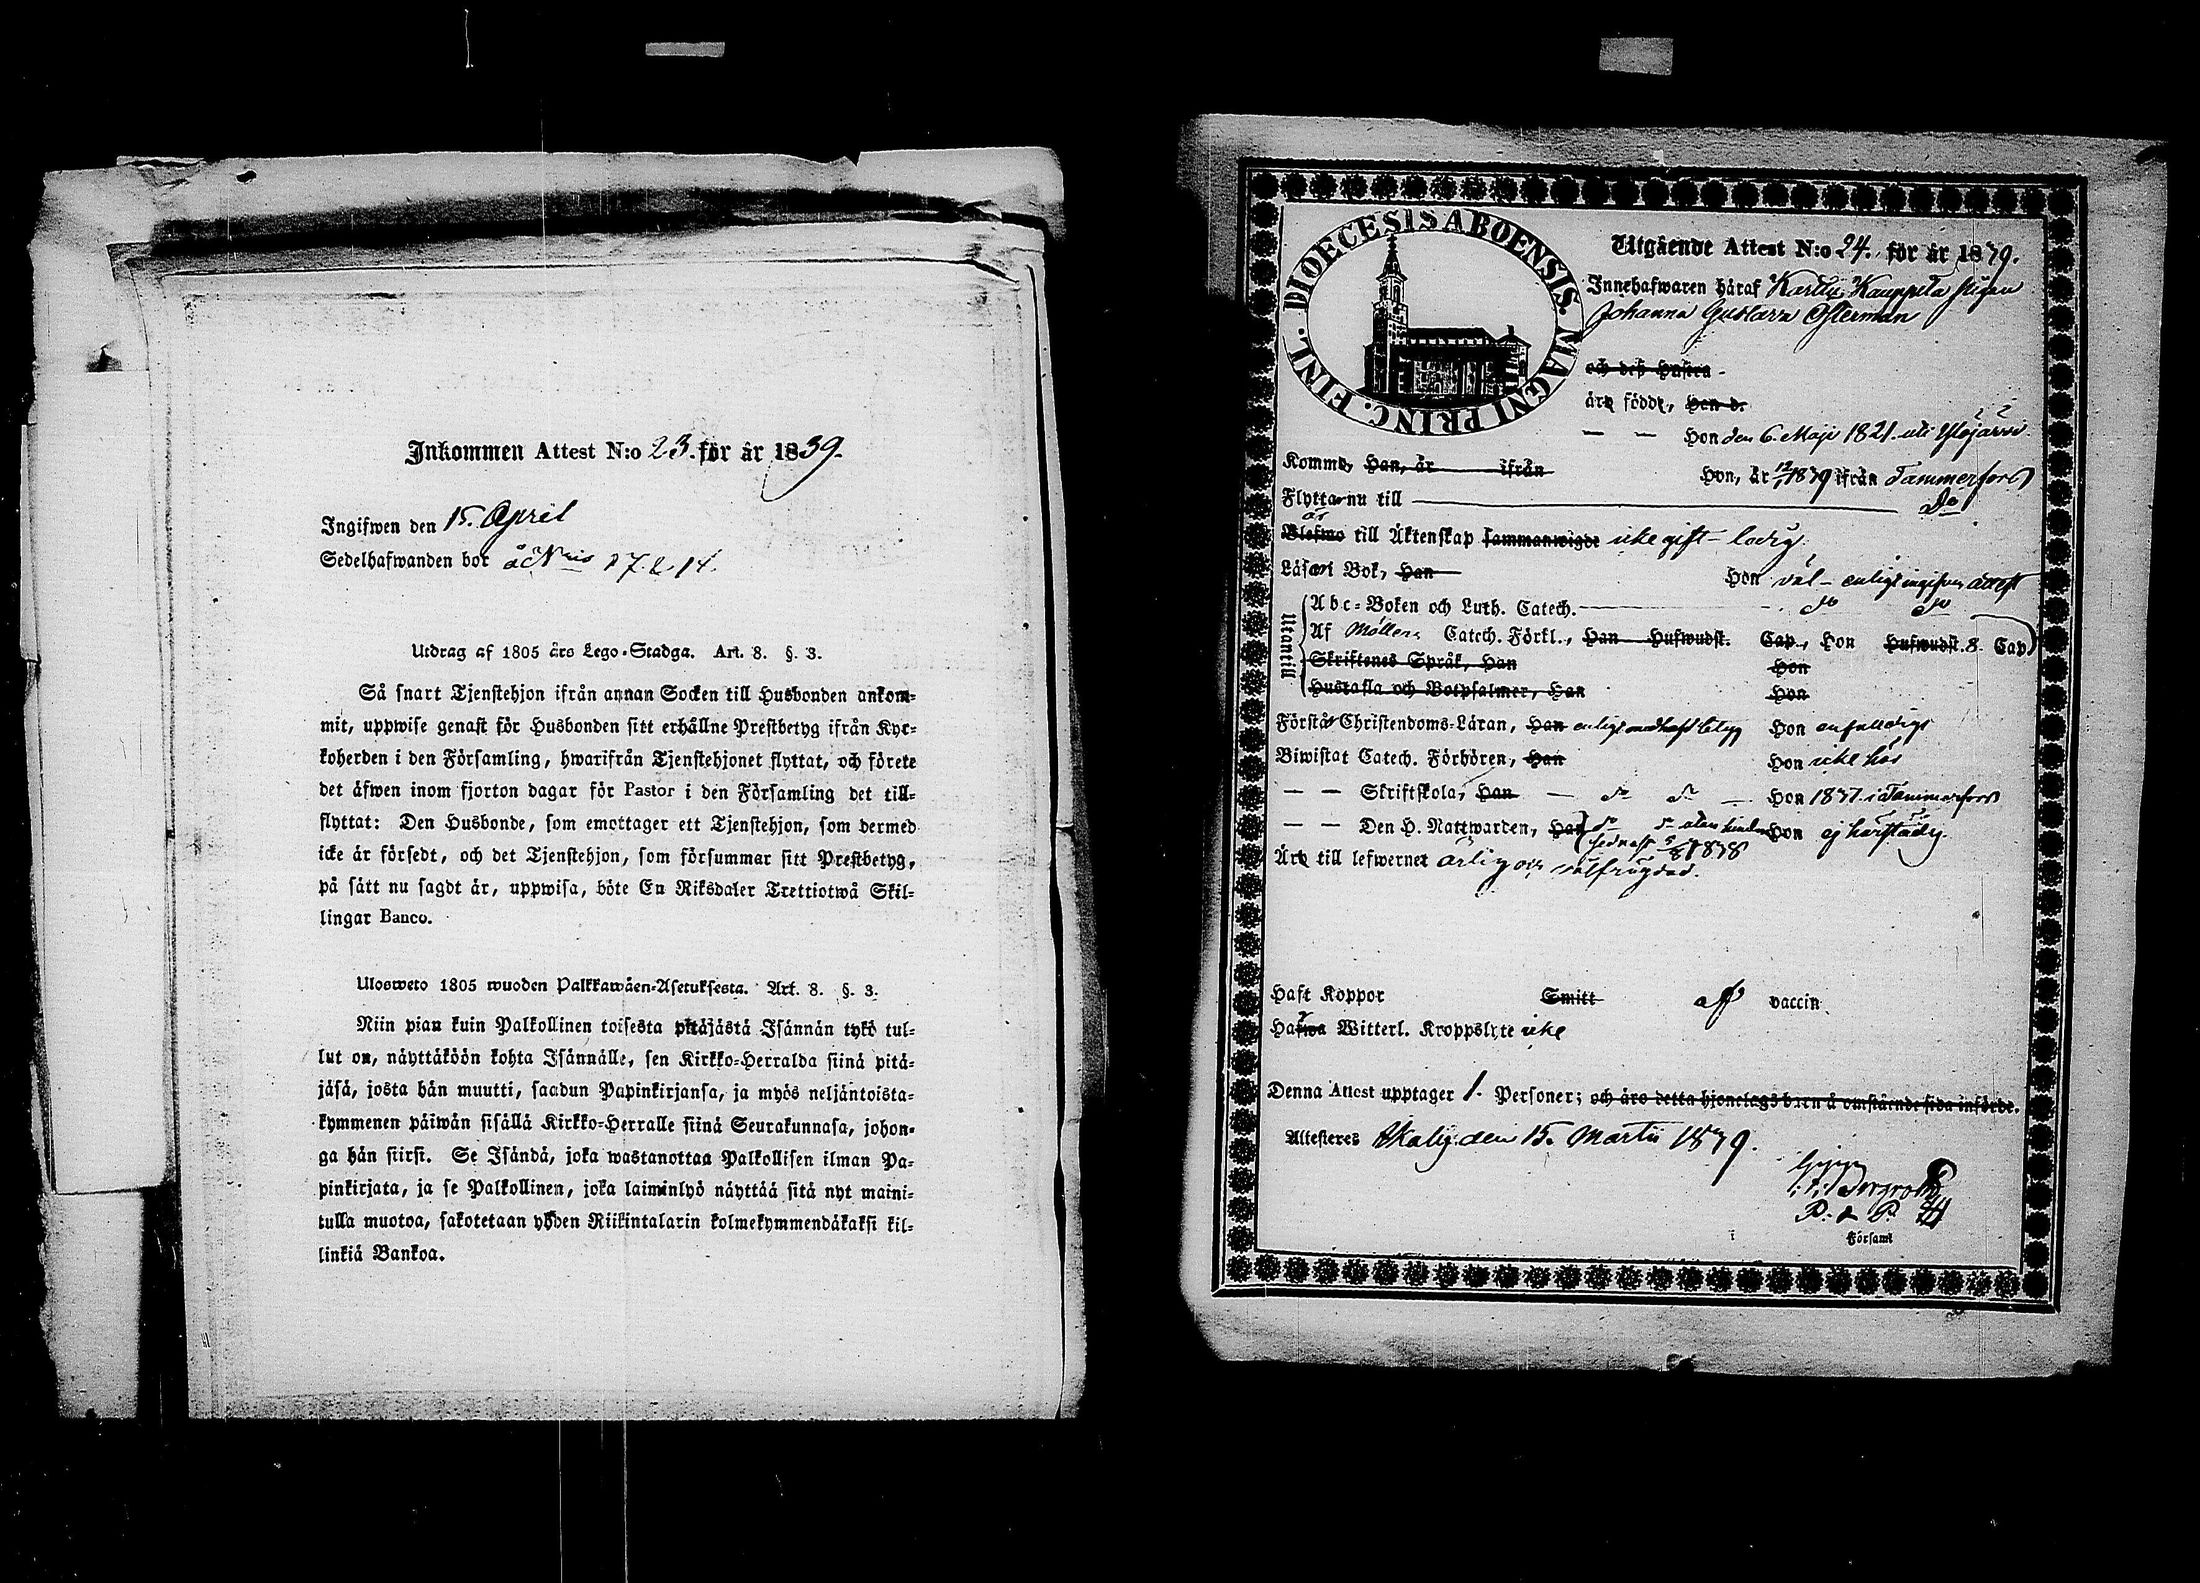 Inkommen Attest N:o 23. för år 1839.
Ingifwen den 15. April
Sedelhafwanden bor å N:ris 27. & 14.
Utdrag af 1805 års Lego-Stadga. Art. 8. §. 3.
Så snart Tjenstehjon ifrån annan Socken till Husbonden ankom-
mit, uppwise genast för Husbonden sitt erhållne Prestbetyg ifrån Kyr-
koherden i den Församling, hwarifrån Tjenstehjonet flyttat, och förete
det äfwen inom fjorton dagar för Pastor i den Församling det till-
flyttat: Den Husbonde, som emottager ett Tjenstehjon, som dermed
icke är försedt, och det Tjenstehjon, som försummar sitt Prestbetyg,
på sätt nu sagdt är, uppwisa, böte En Riksdaler Trettiotwå Skil-
lingar Banco.
Ulosweto 1805 wuoden Palkkawäen-Asetuksesta. Art. 8. §. 3.
Niin pian kuin Palkollinen toisesta pitäjästä Isännän tykö tul-
lut on, näyttäköön kohta Isännälle, sen Kirkko-Herralda siinä pitä-
jäsä, josta hän muutti, saadun Papinkirjansa, ja myös neljäntoista-
kymmenen päiwän sisällä Kirkko-Herralle siinä Seurakunnasa, johon-
ga hän siirsi. Se Isändä, joka wastanottaa Palkollisen ilman Pa-
pinkirjata, ja se Palkollinen, joka laiminlyö näyttää sitä nyt maini-
tulla muotoa, sakotetaan yhden Riikintalarin kolmekymmendäkaksi kil-
linkiä Bankoa.
DIOECESIS ABOENSIS. MAGNI PRINC. FINL.
Utgående Attest N:o 24. för år 1839.
Innehafwaren häraf Kauppila pigan
Johanna Gustava Österman
och deß Hustru
äro födde, Hon d.
— — Hon den 6. Maji 1821. uti Ylöjärvi
Komme, Han, år ifrån Hon, år 1839 ifrån Tammerfors
Flytta nu till Do
är
Blefwo till Äktenskap sammanwigde icke gift - ledig.
Läsa i Bok, Han Hon väl - enligt ingifven attest
Utantill
Abc-Boken och Luth. Catech. do do
Af Möllers Catech. Förkl., Han Hufwudst. Cap., Hon Hufwudst. 8 Cap
Skriftenes Språk, Han Hon
Hustafla och Botpsalmer, Han Hon
Förstå Christendoms-Läran, Han enligt betyg Hon enfalldigt
Biwistat Catech. Förhören, Han Hon icke här
— — Skriftskola, Han — do do — Hon 1837 i Tammerfors
— — Den H. Nattwarden, Han do do utan hinder Hon ej härstädes.
sednast 1838
Äro till lefwernet ärlig och välfrägdad.
Haft Koppor Smitt af vaccin
Hafwa Witterl. Kroppslyte icke
Denna Attest upptager 1. Personer; och äro detta hjonelags barn å omstående sida införde.
Attesteres den 15. Martii 1839.
Bergroth
P: & P.
Församl